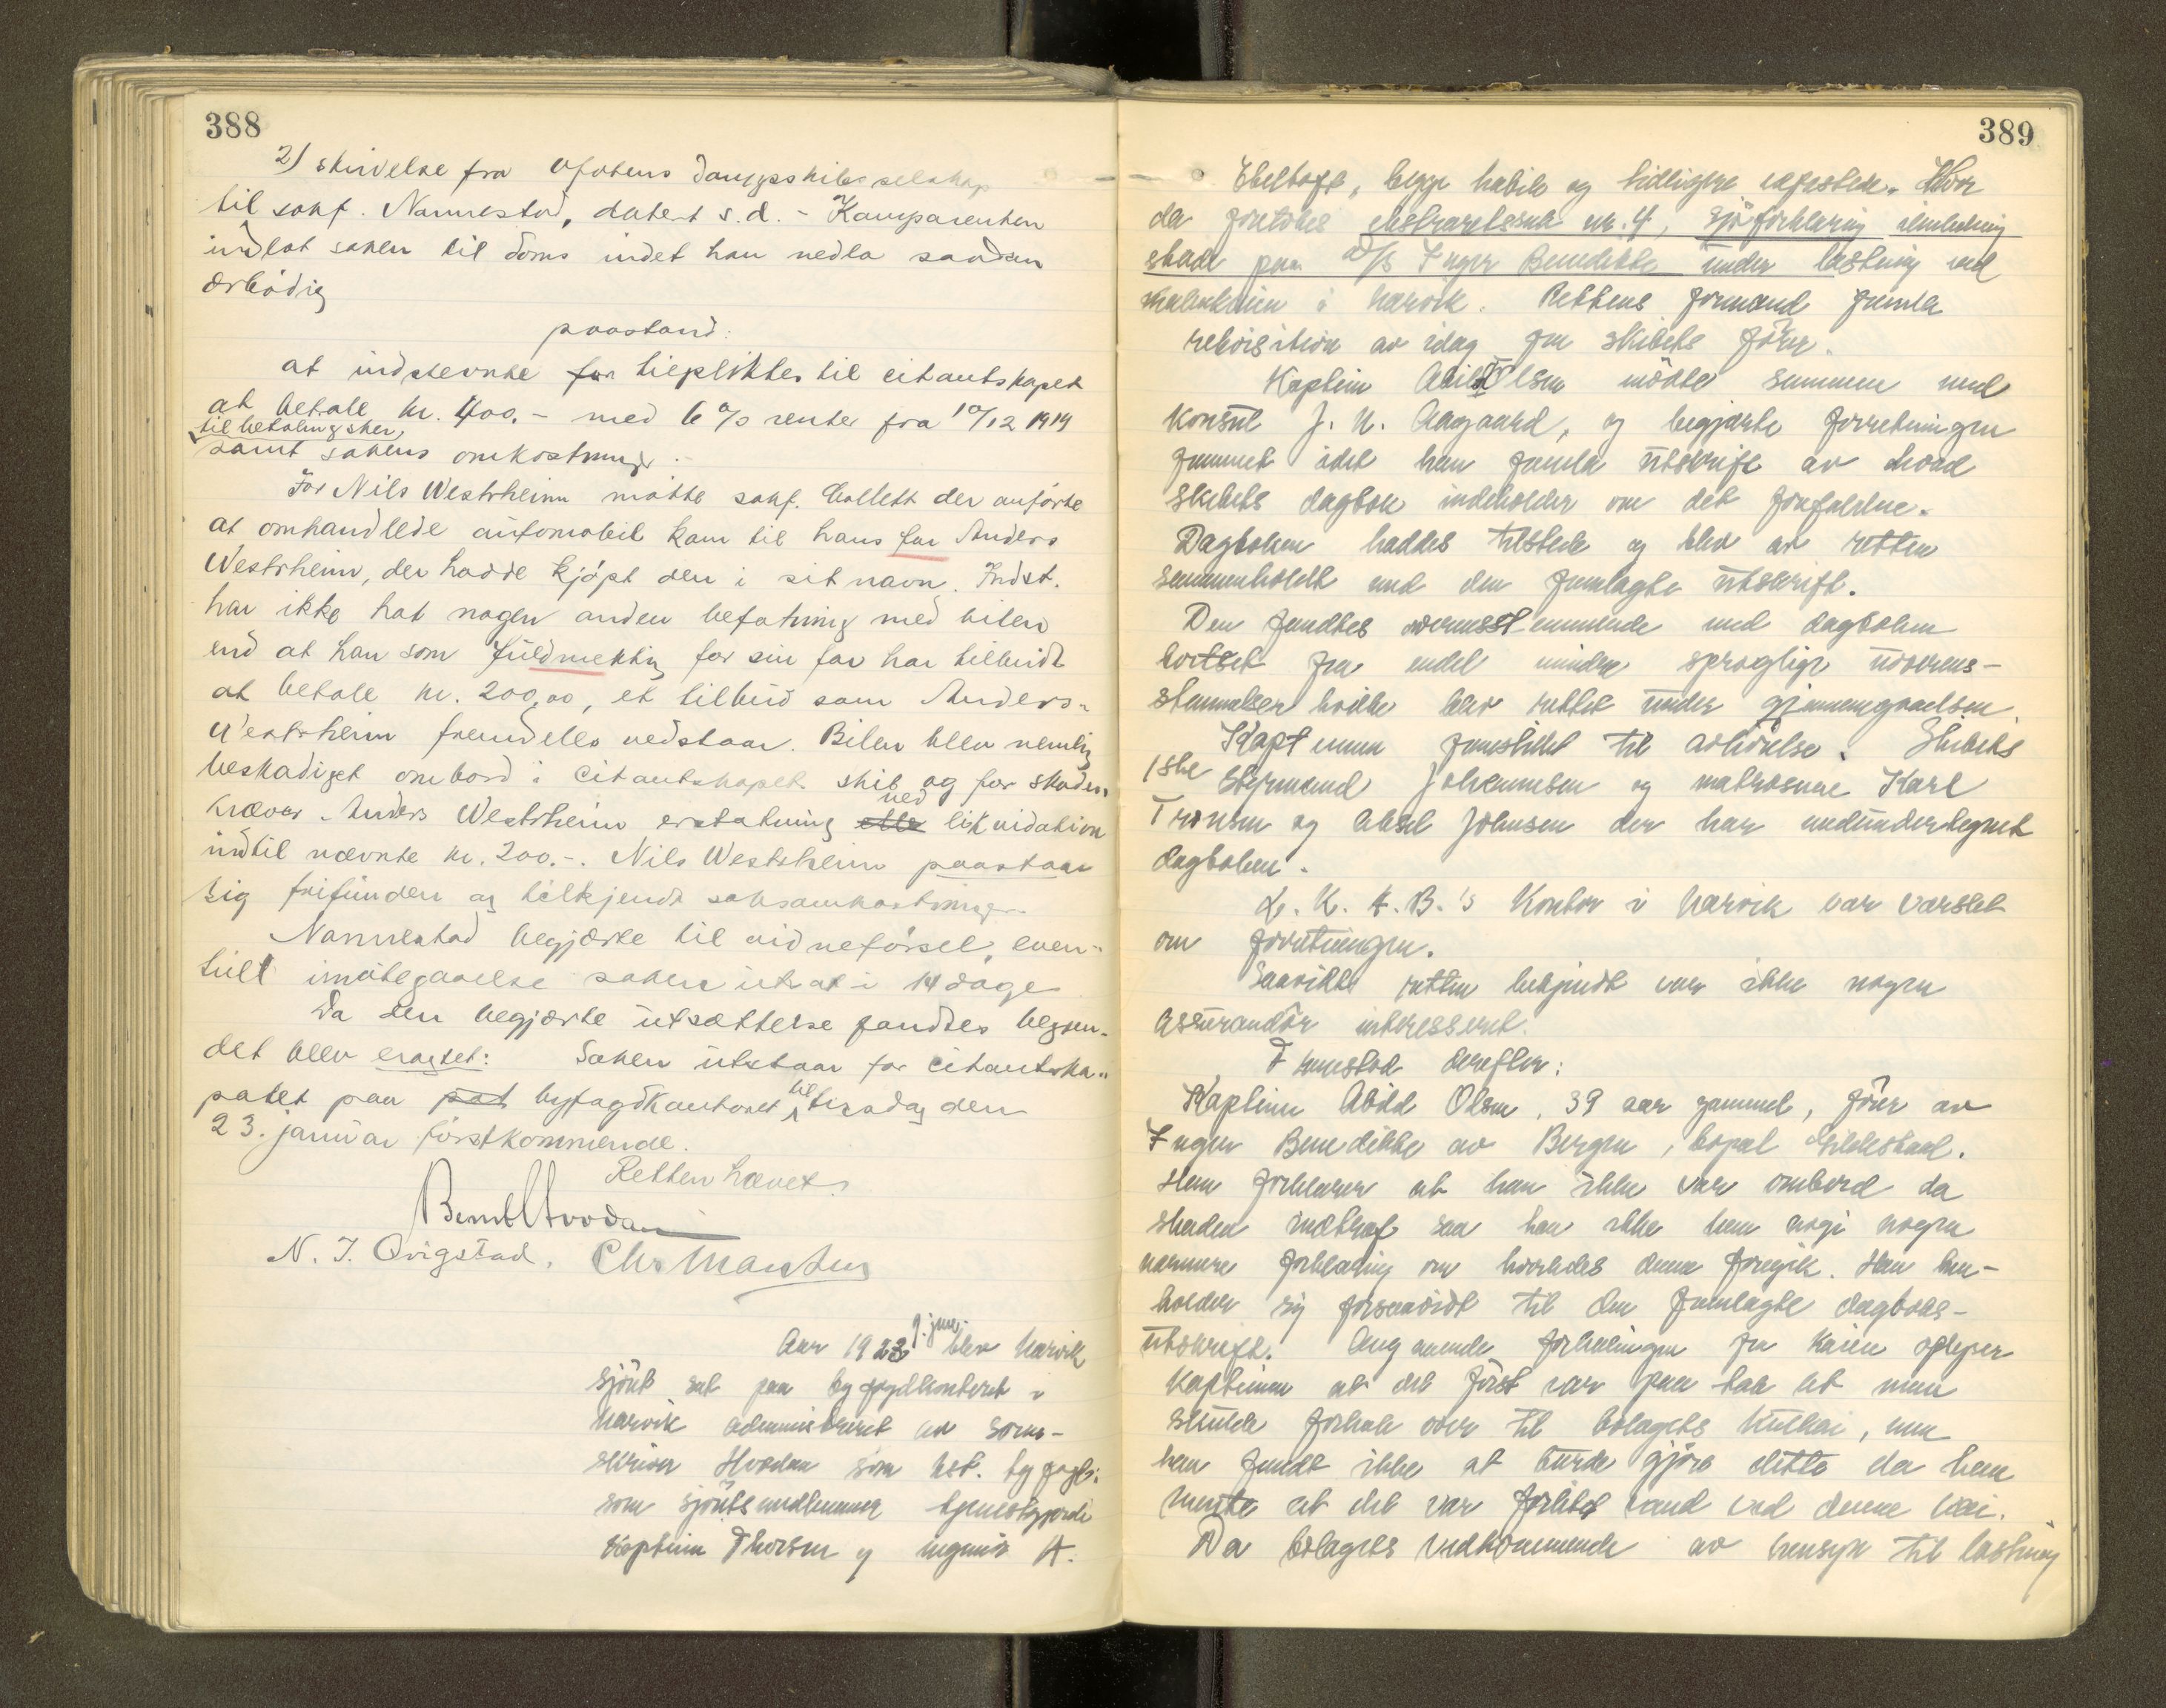 388
2) skrivelse fra Ofotens Dampskibsselskap
til sakf. Nannestad, datert s.d. - Komparenten
indlot saken til doms idet han nedla saadan
ærbödig
paastand:
at indstevnte for tilpliktes til citantskapet
at betale kr. 400.- med 6 % rente fra 10/12 1919
til betaling sker,
samt sakens omkostninger.-
For Nils Westrheim mötte sakf. Collett der anförte
at omhandlede automobil kom til hans far Anders
Westrheim, der hadde kjöpt den i sit navn. Indst.
har ikke hat nogen anden befatning med bilen
end at han som fuldmektig for sin far har tilbudt
at betale kr. 200,00, et tilbud som Anders
Westrheim fremdeles vedstaar. Bilen blev nemlig
beskadiget ombord i citantskapets skib og for skaden
kræver Anders Westrheim erstatning ved likvidation
indtil nævnte kr. 200.-. Nils Westrheim paastaar
sig frifunden og tilkjendt saksomkostninger.
Nannestad begjærte til vidneförsel, even-
tuelt imötegaaelse saken utsat i 14 dage
Da den begjærte utsættelse fandtes begrun-
det blev eragtet: Saken utstaar for citantska-
patet paa pat byfogdkontoret til tirsdag den
23. januar förstkommende.
Retten hævet.
N. J. Qvigstad. Chr Mar
Aar 1923 9. jan. blev Narvik
sjöret sat paa byfogdkontoret i
Narvik administreret av soren-
skriver Hvoslan som kst. byfogd.
som sjöretsmedlemmer tjenestgjorde
kaptein Thorsen og ingeniör A.
389
Ebeltoft, begge habile og tidligere edfestede. Hvor
da foretokes ekstraretssak nr. 4, sjöforklaring i anledning
skade paa D/S Inger Benedikte under lastning ved
malmkaien i Narvik. Rettens formand fremla
rekvisition av idag fra skibets förer.
Kaptein Abild Olsen mötte sammen med
Konsul J. N. Aagaard, og begjærte forretningen
fremmet idet han fremla utskrift av hvad
skibets dagbok indeholder om det forefaldne.
Dagboken haddes tilstede og blev av retten
sammenholdt med den fremlagte utskrift.
Den fandtes overensstemmende med dagboken
bortset fra endel mindre sproglige uoverens-
stemmelser hvilke blev rettet under gjennemgaaelsen.
Kapt einen fremstillet til avhörelse. Skibets
1ste styrmand Johannesen og matroserne Karl
Tronsen og Aksel Johnsen der har medundertegnet
dagboken.
L. K. A. B.'s Kontor i Narvik var varslet
om forretningen.
Saavidt retten bekjendt var ikke nogen
assurandör interesseret.
Fremstod derefter:
Kaptein Abild Olsen, 39 aar gammel, förer av
Inger Benedikte av Bergen, bopæl
Han forklarer at han ikke var ombord da
skaden indtraf saa han ikke kan avgi nogen
nærmere forklaring om hvorledes denne foregik. Han hen-
holder sig forsaavidt til den fremlagte dagboks-
utskrift. Angaaende forhalingen fra kaien oplyser
kapteinen at det först var paa tale at man
skulde forhale over til bolagets kulkai, men
han fandt ikke at burde gjöre dette da han
mente at det var forlitet vand ved denne kai.
Da bolagets vedkommende av hensyn til lastning